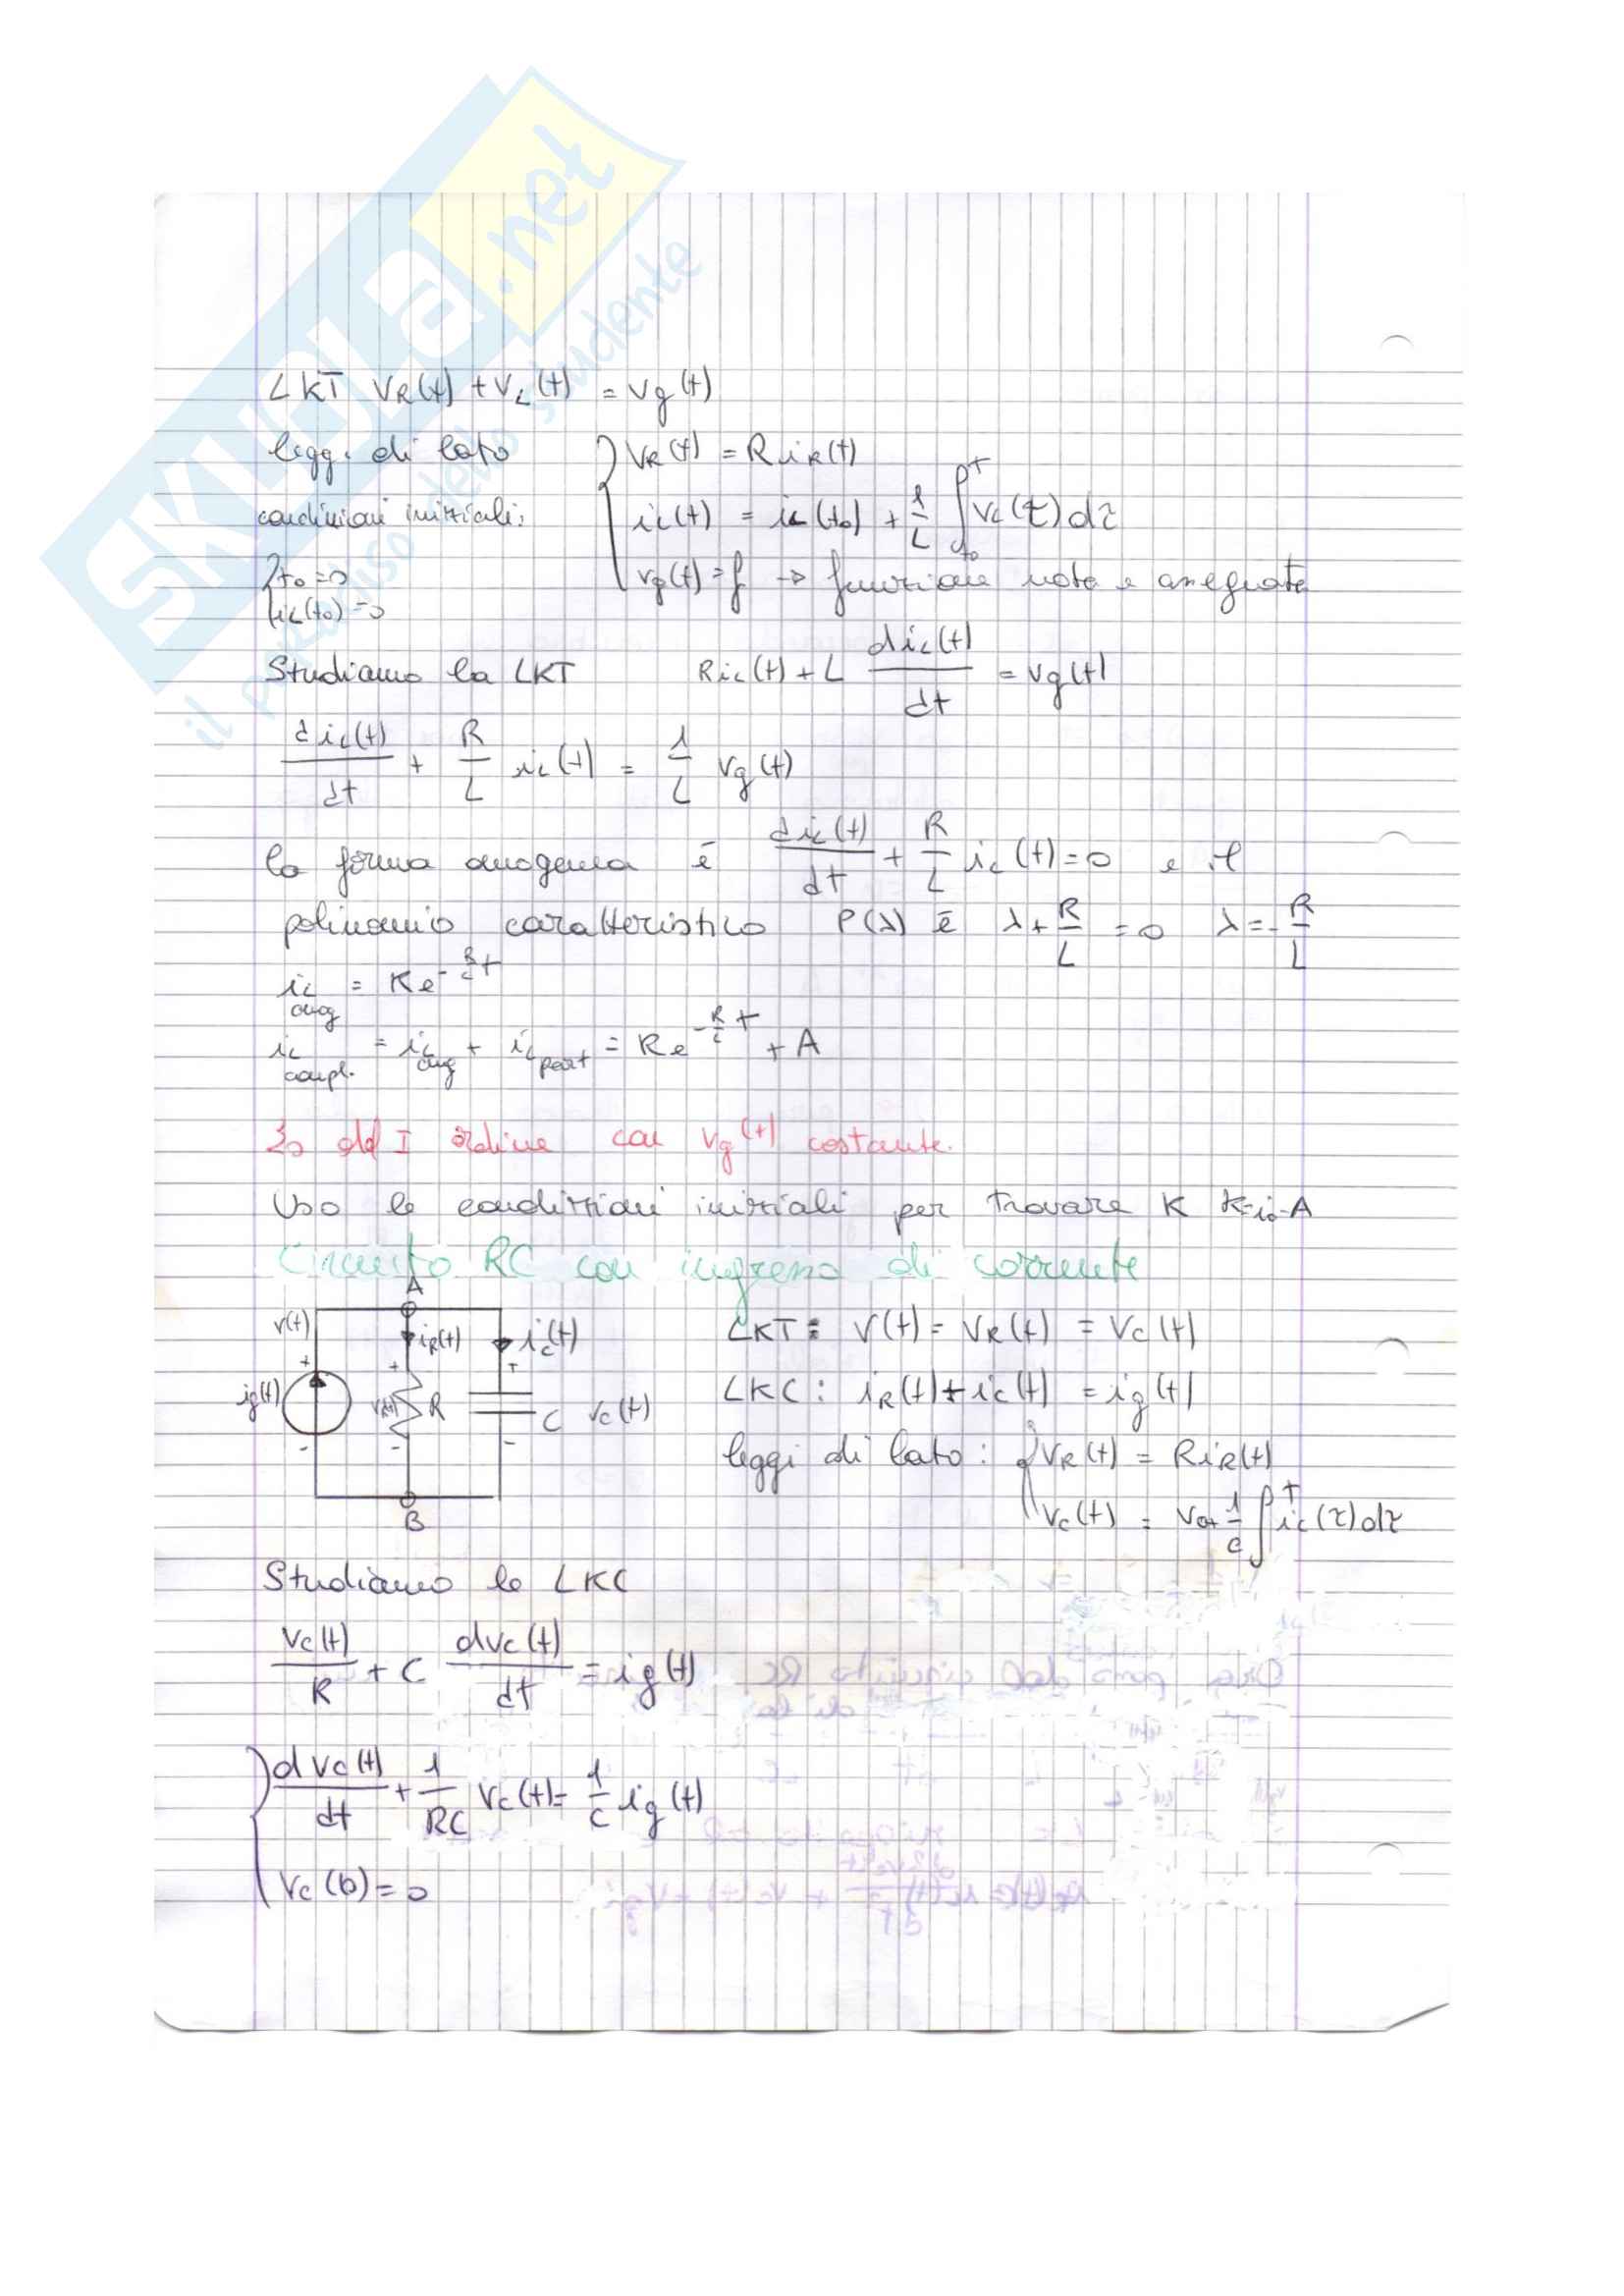 SKUOLA.net
il paradiso dello studente
LKT VR(t) + VL(t) = Vg(t)
leggi di lato { VR(t) = R iR(t)
condizioni iniziali: iL(t) = iL(t0) + 1/L ∫t0^t VL(τ)dτ
{ t0 = 0 Vg(t) = f → funzione nota e assegnata
iL(t0) = 0
Studiamo la LKT R iL(t) + L diL(t)/dt = Vg(t)
diL(t)/dt + R/L iL(t) = 1/L Vg(t)
la forma omogenea è diL(t)/dt + R/L iL(t) = 0 e il
polinomio caratteristico P(λ) è λ + R/L = 0 λ = -R/L
iL omog = K e^-R/L t
iL compl. = iL omog + iL part = K e^-R/L t + A
del I ordine con Vg(t) costante.
Uso le condizioni iniziali per trovare K K=i0-A
Circuito RC con ingresso di corrente
A
v(t) iR(t) ic(t) LKT: V(t) = VR(t) = Vc(t)
+ + +
ig(t) VR(t) R C Vc(t) LKC: iR(t) + ic(t) = ig(t)
- - - leggi di lato: { VR(t) = R iR(t)
B Vc(t) = V0 + 1/C ∫^t ic(τ)dτ
Studiamo la LKC
Vc(t)/R + C dVc(t)/dt = ig(t)
{ dVc(t)/dt + 1/RC Vc(t) = 1/C ig(t)
Vc(0) = 0